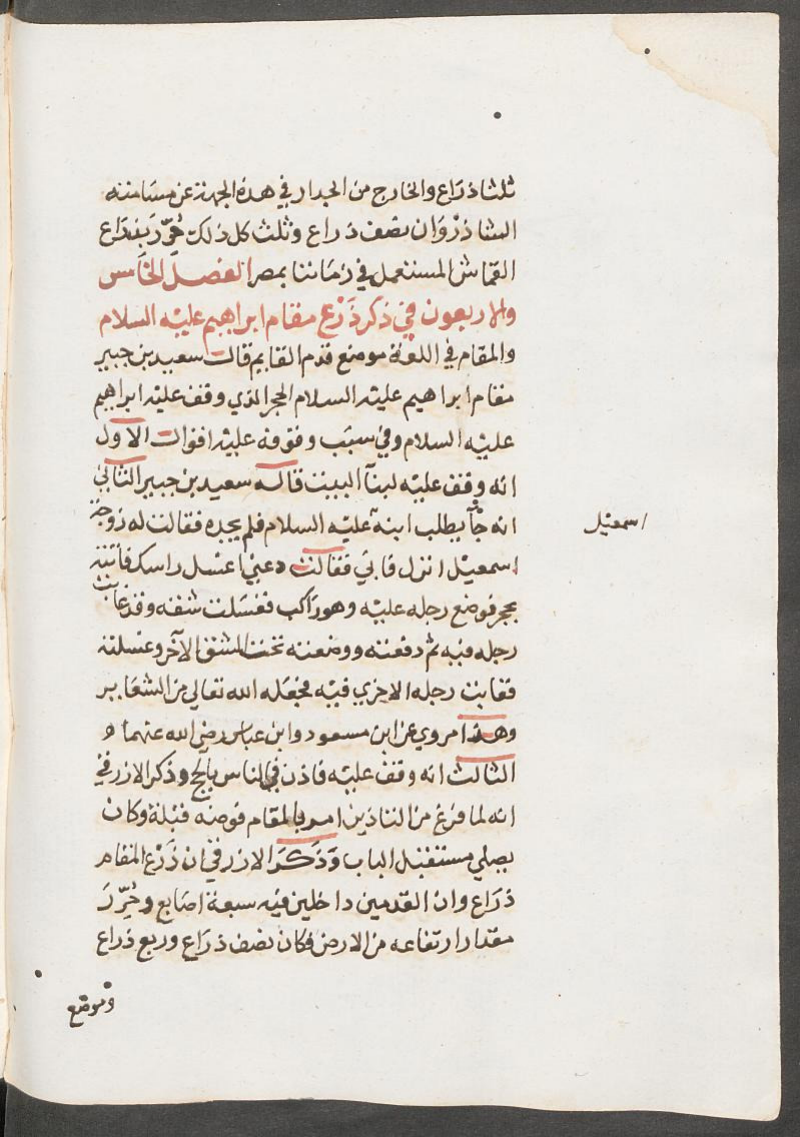 ثلثا ذراع والخارج من الجدار في هذه الجهة عن مسامتة
الشاذروان نصف ذراع وثلث كل ذلك حُرِّرَ بذراع
القماش المستعمل في زماننا بمصر الفصل الخامس
والاربعون في ذكر ذَرْع مقام ابراهيم عليه السلام
والمقام في اللغة موضع قدم القايم قال سعيد بن جبير
مقام ابراهيم عليه السلام الحجر الذي وقف عليه ابراهيم
عليه السلام وفي سبب وقوفه عليه اقوال الاول
انه وقف عليه لبنآ البيت قاله سعيد بن جبير الثاني
انه جآ يطلب ابنه عليه السلام فلم يجده فقالت له زوجة
اسمعيل
اسمعيل انزل فابي فقالت دعني اغسل راسك فاتته
بحجر فوضع رجله عليه وهو راكب فغسلت شقه وقد غابت
رجله فيه ثم دفعته ووضعته تحت الشق الآخر وغسلته
فغابت رجله الاخري فيه فجعله الله تعالي من الشعاير
وهذا مروي عن ابن مسعود وابن عباس رضي الله عنهما و
الثالث انه وقف عليه فاذن في الناس بالحج وذكر الازرقي
انه لما فرغ من التاذين امر بالمقام فوضه قبلة وكان
يصلي مستقبل الباب وَذَكَرَ الازرقي ان ذَرْع المقام
ذراع وان القدمين داخلين فيه سبعة اصابع وحُرِّرَ
مقدار ارتفاعه من الارض فكان نصف ذراع وربع ذراع
وموضع